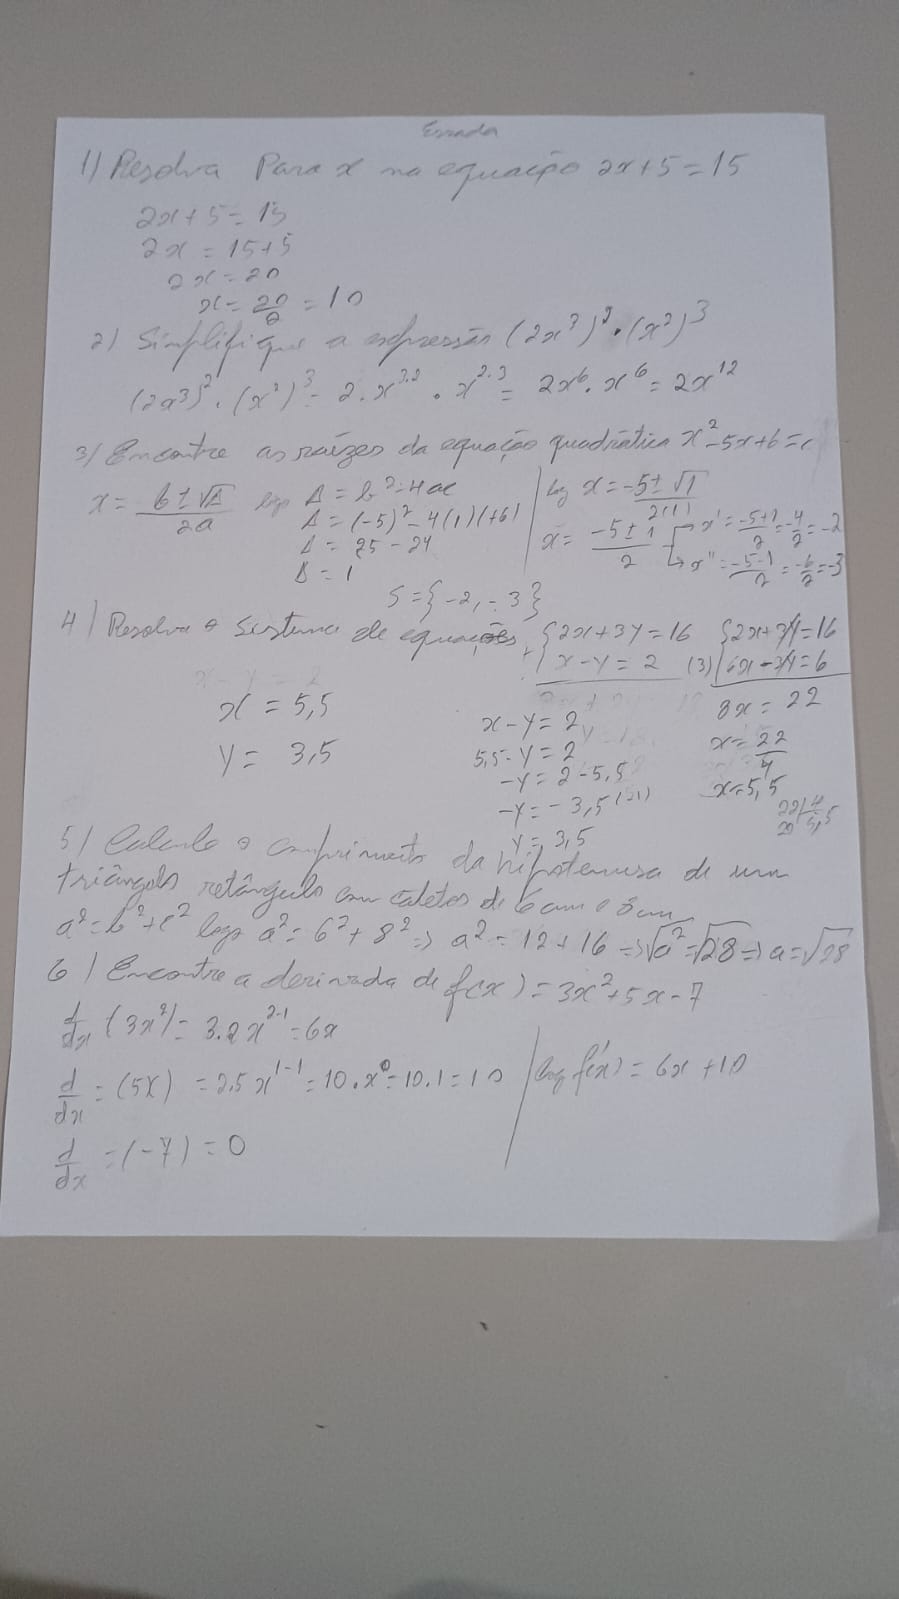 Errada
1) Resolva Para x na equação 2x+5=15
2x+5=15
2x = 15+5
2x=20
x=20/2=10
2) Simplifique a expressão (2x³)²·(x²)³
(2x³)²·(x²)³=2·x³·²·x²·³=2x⁶·x⁶=2x¹²
3) Encontre as raízes da equação quadrática x²-5x+6=
x=b±√Δ/2a logo Δ=b²-4ac
Δ=(-5)²-4(1)(+6)
Δ=25-24
Δ=1
log x=-5±√1/2(1)
x=-5±1/2 x'=-5+1/2=-4/2=-2
x''=-5-1/2=-6/2=-3
S={-2,-3}
4) Resolva o Sistema de equações {2x+3y=16 {2x+3y=16
x-y=2 (3) 6x-3y=6
x=5,5
y=3,5
x-y=2
5,5-y=2
-y=2-5,5
-y=-3,5(-1)
y=3,5
8x=22
x=22/4
x=5,5
22 4
20 5,5
5) Calcule o comprimento da hipotenusa de um
triângulo retângulo com catetos de 6cm e 8cm
a²=b²+c² logo a²=6²+8²⇒a²=12+16⇒√a²=√28⇒a=√28
6) Encontre a derivada de f(x)=3x²+5x-7
d/dx (3x²)=3.2x²⁻¹=6x
d/dx=(5x)=2.5x¹⁻¹=10.x⁰=10.1=10
d/dx=(-7)=0
log f'(x)=6x+10